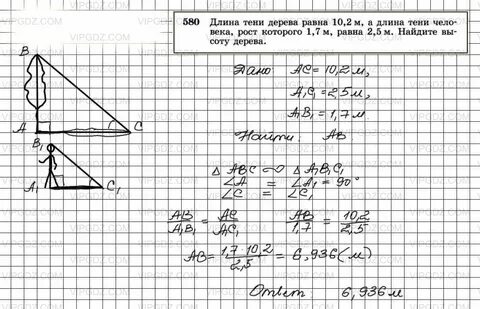 580 Длина тени дерева равна 10,2 м, а длина тени чело-
века, рост которого 1,7 м, равна 2,5 м. Найдите вы-
соту дерева.
Дано: AC = 10,2 м,
A₁C₁ = 2,5 м,
A₁B₁ = 1,7 м
Найти: AB
B
A
C
B₁
A₁
C₁
△ ABC ∾ △ A₁B₁C₁
∠A = ∠A₁ = 90°
∠C = ∠C₁
AB/A₁B₁ = AC/A₁C₁ AB/1,7 = 10,2/2,5
AB = 1,7 · 10,2/2,5 = 6,936 (м)
Ответ: 6,936 м
VIPGDZ.COM